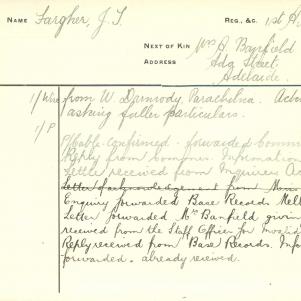 NAME Fargher, J. S. REG., &C. 1st
NEXT OF KIN Mrs A. Banfield
ADDRESS Ada Street
Adelaide.
1/Wire from W. Dermody, Parachilna.
asking fuller particulars.
1/P
P/Cable confirmed. forwarded
Reply from
Letter received from Inquiries
Letter of acknowledgement from
Enquiry forwarded Base Records
Letter forwarded Mrs Banfield
received from the Staff Officer for
Reply received from Base Records.
forwarded. already received.